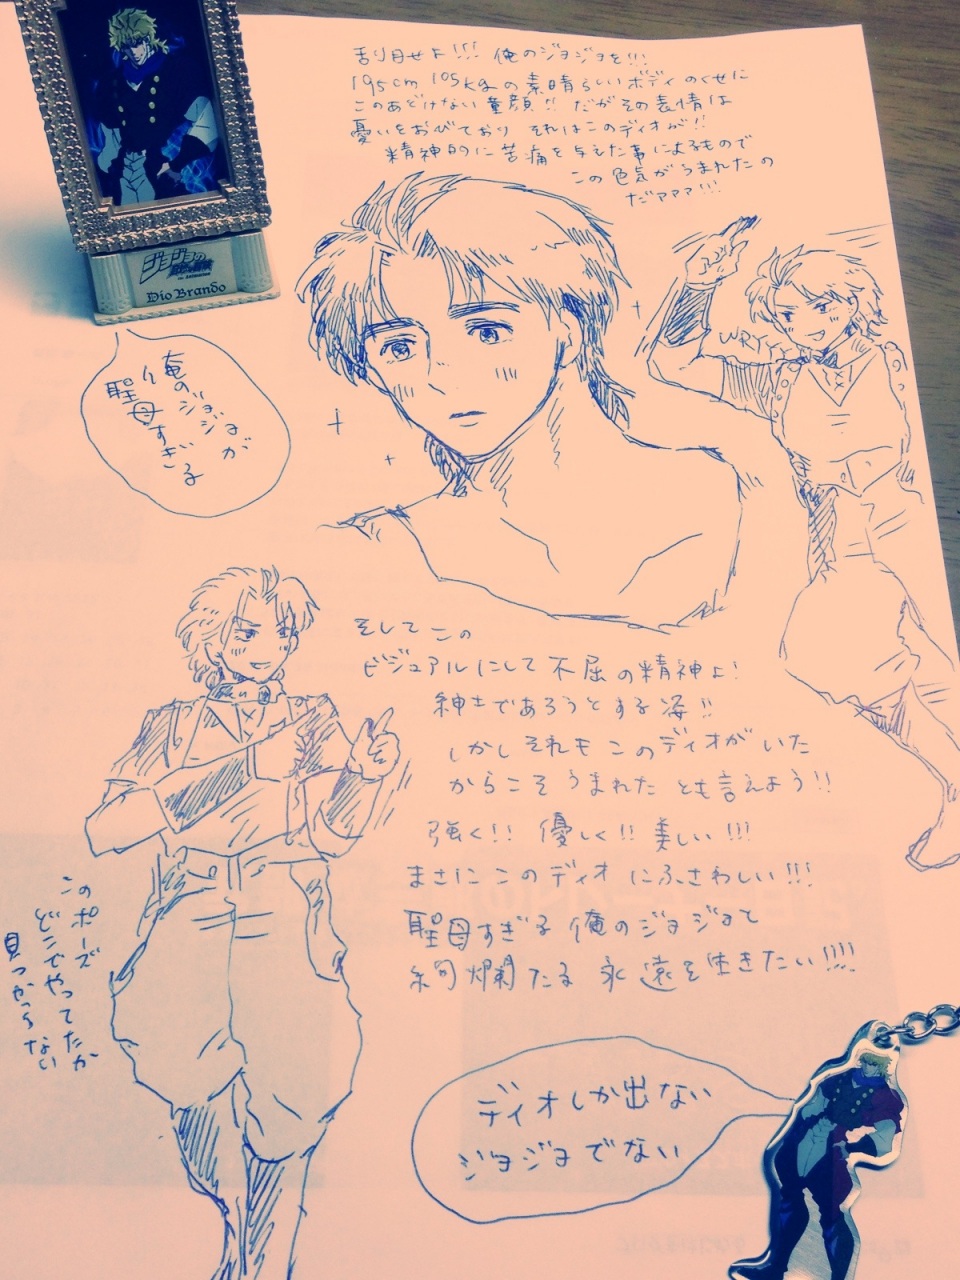 刮目せよ!!! 俺のジョジョを!!!
195cm 105kgの素晴らしいボディのくせに
このあどけない童顔!! だがその表情は
憂いをおびており それはこのディオが!!
精神的に苦痛を与えた事によるもので
この色気がうまれたの
だアアア!!!
ジョジョの
Dio Brando
俺のジョジョが
聖母すぎる
WRYY
そしてこの
ビジュアルにして不屈の精神よ!
紳士であろうとする姿!!
しかしそれもこのディオがいた
からこそうまれたとも言えよう!!
強く!! 優しく!! 美しい!!!
まさにこのディオにふさわしい!!!
聖母すぎる俺のジョジョと
絢爛たる永遠を生きたい!!!!
このポーズ
どこでやってたか
見つからない
ディオしか出ない
ジョジョでない